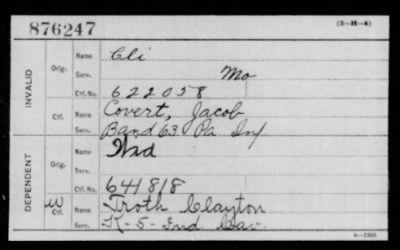 876247
(3-H-4)
INVALID
Orig.
Name
Eli
Serv.
Mo
Ctf. No.
622058
Ctf.
Name
Covert, Jacob
Serv.
Band 63 Pa Inf
DEPENDENT
Orig.
Name
Wid
Serv.
Ctf. No.
641818
W
Ctf.
Name
Troth Clayton
Serv.
K-5-Ind Cav.